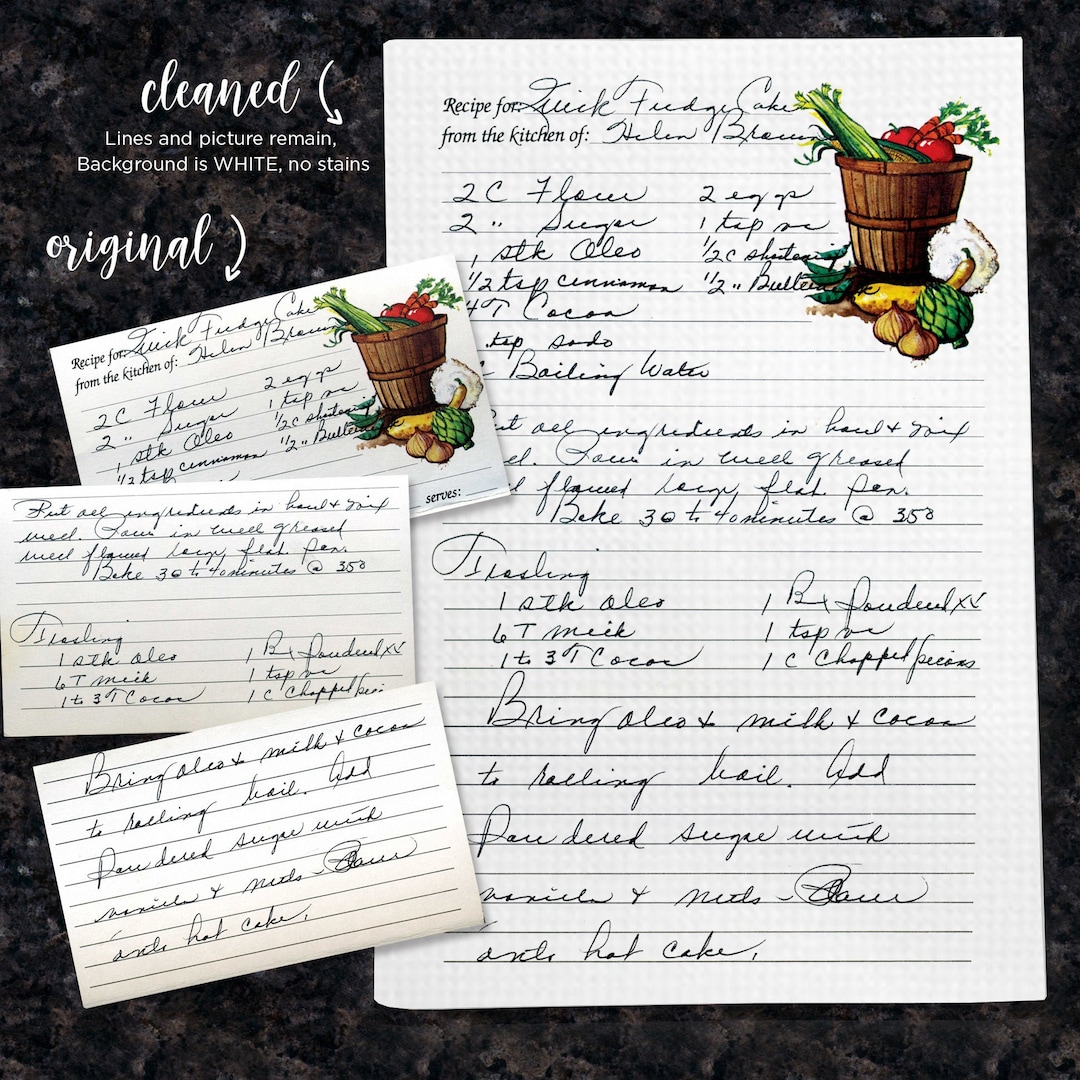 cleaned
Lines and picture remain,
Background is WHITE, no stains
original
Recipe for: Quick Fudge Cake
from the kitchen of: Helen Brown
2 C Flour 2 eggs
2 " Sugar 1 tsp va
1 stk Oleo 1/2 C shortening
1/2 tsp cinnamon 1/2 " Butterm
4 T Cocoa
tsp soda
Boiling Water
ut all ingredients in bowl & mix
l. Pour in well greased
flowed large, flat pan.
Bake 30 to 40 minutes @ 350
Frosting
1 stk oleo 1 Bx Powdered XX
6 T milk 1 tsp va
1 to 3 T Cocoa 1 C Chopped pecans
Bring oleo & milk & cocoa
to rolling boil. Add
Powdered sugar with
vanilla & nuts - Pour
onto hot cake.
Recipe for: Quick Fudge Cake
from the kitchen of: Helen Brown
2 C Flour 2 eggs
2 " Sugar 1 tsp va
1 stk Oleo 1/2 C shortening
1/2 tsp cinnamon 1/2 " Butterm
serves:
Put all ingredients in bowl & mix
well. Pour in well greased
well flowed large, flat pan.
Bake 30 to 40 minutes @ 350
Frosting
1 stk oleo 1 Bx Powdered XX
6 T milk 1 tsp va
1 to 3 T Cocoa 1 C Chopped pecans
Bring oleo & milk & cocoa
to rolling boil. Add
Powdered sugar with
vanilla & nuts - Pour
onto hot cake.